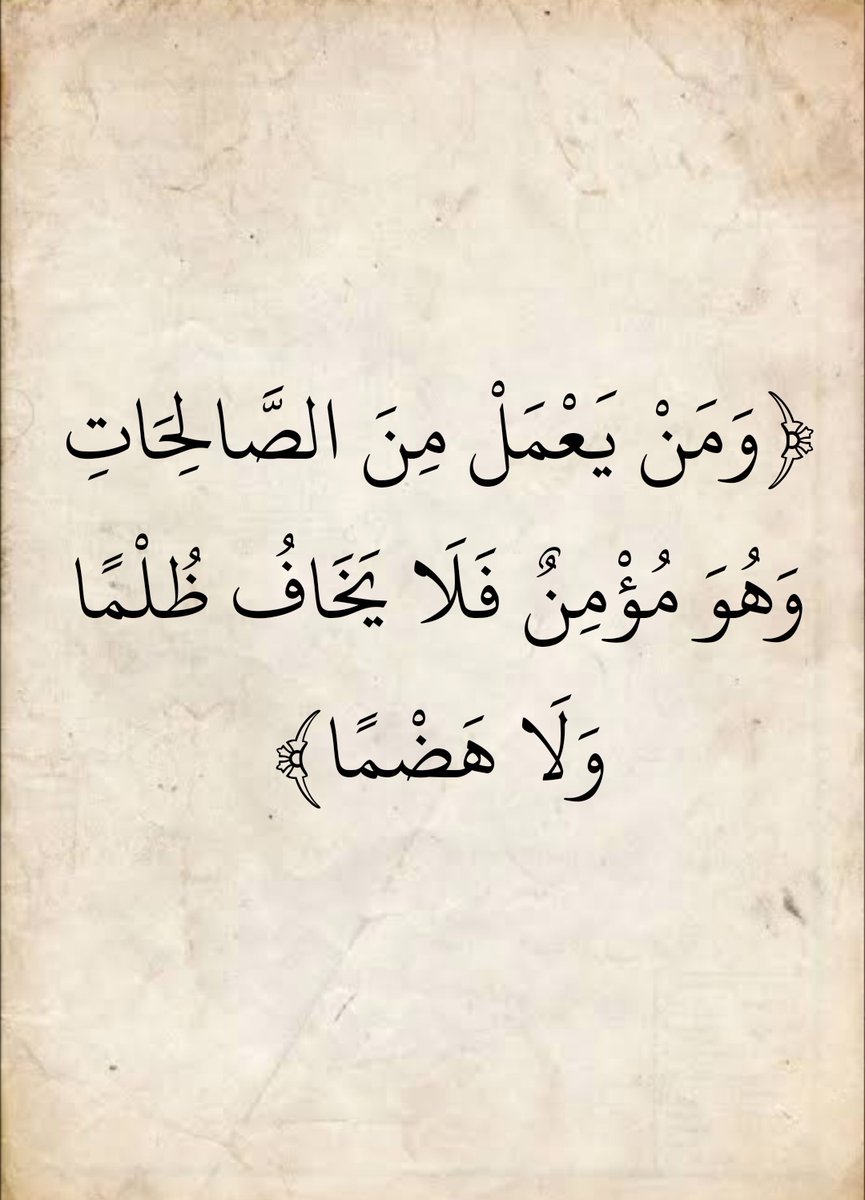 ﴿وَمَنْ يَعْمَلْ مِنَ الصَّالِحَاتِ
وَهُوَ مُؤْمِنٌ فَلَا يَخَافُ ظُلْمًا
وَلَا هَضْمًا﴾